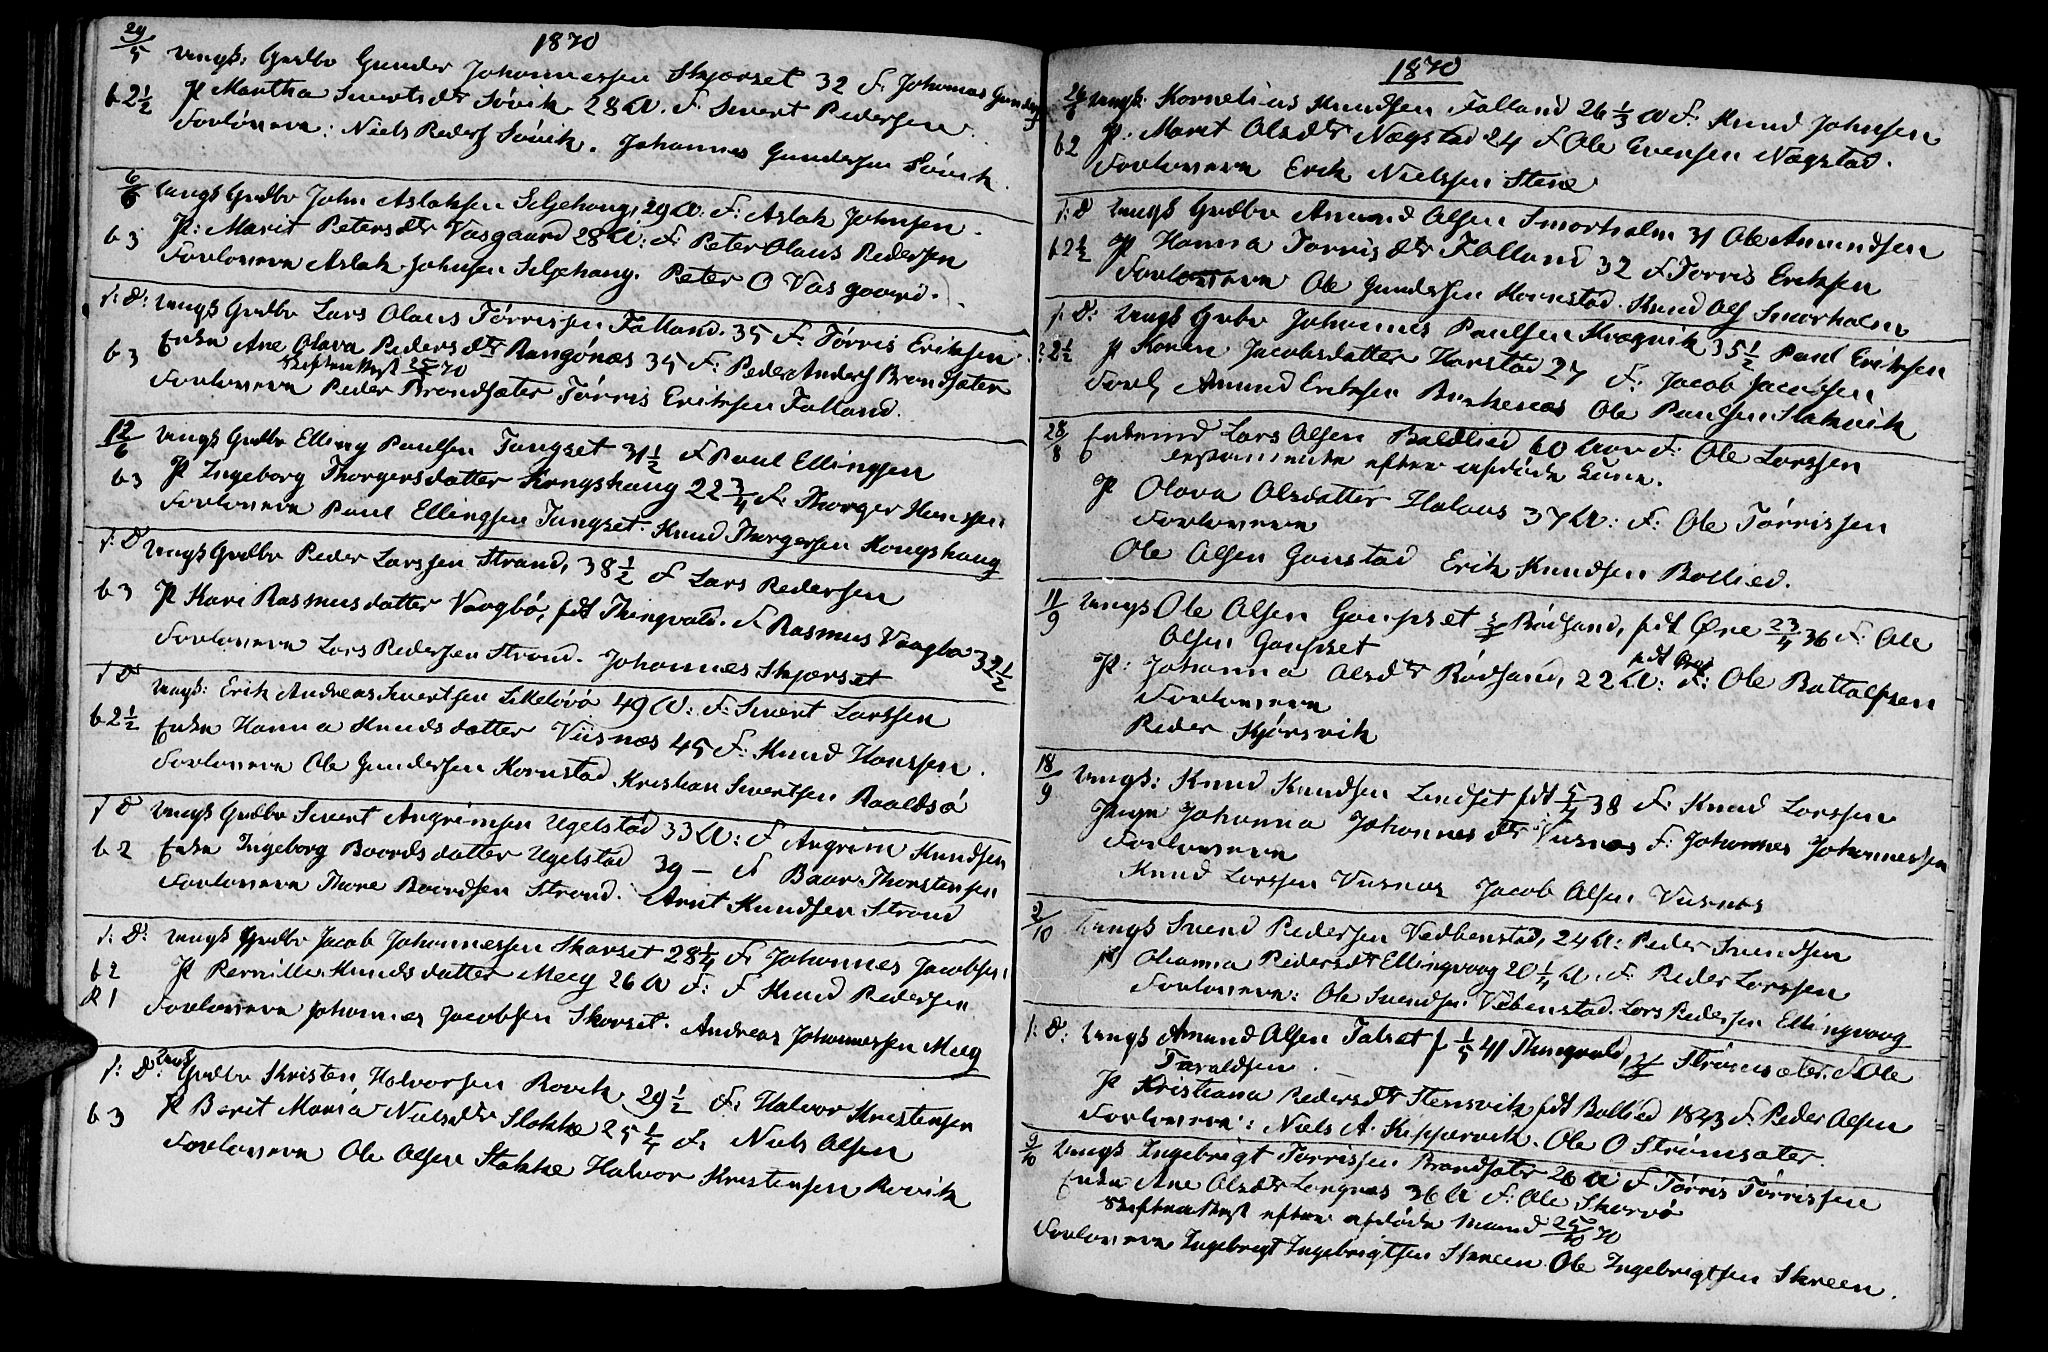 1870
29/5 Ungk: Grdbr Gunder Johannessen Skjærset 32 F. Johannes Gunders
b 2½ P Martha Sivertsdtr Sövik 28 A. F. Sivert Pedersen.
Forlovere: Niels Peders Sövik. Johannes Gundersen Sövik.
6/6 Ungk Grdbr John Aslaksen Seljehoug, 29 A: F: Aslak Johnsen.
b 3 P: Marit Petersdtr Vasgaard 28 A: F: Peter Olaus Pedersen
Forlovere Aslak Johnsen Seljehoug. Peter O Vasgaard.
s: D: Ungk Grdbr Lars Olaus Törrissen Folland. 35 F. Törris Eriksen
b 3 Enke Ane Olava Pedersdtr Rangönæs 35 F: Peder Anders Brandsæter
Skifteattest 25/5 70
Forlovere Peder Brandsæter Törris Eriksen Folland.
12/6 Ungk Grdbr Elling Paulsen Tungset 31½ F Paul Ellingsen
b 3 P Ingeborg Thorgersdatter Kongshaug 22¾ F. Thorger Hanssen
Forlovere Paul Ellingsen Tungset. Knud Thorgersen Kongshaug
s: D Ungk Grdbr Peder Larssen Strand, 38½ F Lars Pedersen
b 3 P Kari Rasmusdatter Vaagbö, fdt Thingvold. F Rasmus Vaagbö 32½
Forlovere Lars Pedersen Strand. Johannes Skjærset
s D Ungk: Erik Andreas Sivertsen Lillelövö 49 A: F: Sivert Larssen
b 2½ Enke Hanna Knudsdatter Viisnæs 45 F: Knud Hanssen.
Forlovere Ole Gundersen Kornstad Kristian Sivertsen Raaldsö
s D Ungk Grdbr Sivert Angrimsen Ugelstad 33 A: F Angrim Knudsen
b 2 Enke Ingeborg Baardsdatter Ugelstad 39 — F Baar Thorstensen
Forlovere Thore Baardsen Strand. Arnt Knudsen Strand
s: D: Ungk Grdbr Jacob Johannessen Skarset 28¼ F. Johannes Jacobsen
b 2 P Pernille Knudsdatter Meeg 26 A F: F Knud Pedersen
R 1 Forlovere Johannes Jacobsen Skarset. Andreas Johannessen Meeg
s: D: Ungk Grdbr Kristen Halvorsen Rovik 29½ F: Halvor Kristensen
b 3 P Berit Maria Nielsdtr Stokke 25¼ F. Niels Olsen
Forlovere Ole Olsen Stokke Halvor Kristensen Rovik
1870
26/6 Ungk: Kornelius Knudsen Folland 26⅓ A F. Knud Johnsen
b 2 P. Marit Olsdtr Nægstad 24 F Ole Evensen Nægstad.
Forlovere Erik Nielssen Stene
s: D Ungk Grdbr Amund Olsen Smörholm 31 Ole Amundsen
b 2½ P Hanna Torrisdtr Folland 32 F Torris Eriksen
Forlovere Ole Gundersen Kornstad. Knud Ols Smörholm
s. D: Ungk Grbr Johannes Paulsen Kvægvik 35½ Paul Eriksen
2½ P Karen Jacobsdatter Harstad 27 F: Jacob Jacobsen
Forl Amund Eriksen Birkenæs Ole Paulsen Stakvik
28/8 Enkemd Lars Olsen Boldlied 60 Aar F: Ole Larssen
efter afdöde Kone.
P Olava Olsdatter Halaas 37 A: F: Ole Törrissen
Forlovere
Ole Olsen Gaustad Erik Knudsen Bollied.
11/9 Ungk Ole Olsen Gaupset Rödsand, fdt Öre 23/4 36 F: Ole
Olsen Gaupset
P: Johanna Olsdtr Rödsand, 22 A: fdt Öre F: Ole Battalsen
Forlovere
Peder Skjörsvik
18/9 Ungk: Knud Knudsen Lindset fdt 5/7 38 F: Knud Larssen
Pigen Johanna Johannesdtr Viisnæs F: Johannes Johannessen
Forlovere
Knud Larssen Viisnæs Jacob Olsen Viisnæs
2/10 Ungk Svend Pedersen Vedbenstad, 24 A: Peder Svendsen
P Olianna Pedersdtr Ellingvaag 20¼ A. F: Peder Larssen
Forlovere: Ole Svendsen Vebenstad. Lars Pedersen Ellingvaag
s: D: Ungk Amund Olsen Talset f 1/5 41 Thingvold, Strömsæter. F Ole
Taraldsen
P Kristiana Pedersdtr Stensvik fdt Bollied 1843 F. Peder Olsen
Forlovere: Niels A. Kipparvik. Ole O Strömsæter.
9/10 Ungk Ingebrigt Törrissen Brandsæter 26 A F Törris Törrissen
Enke Ane Olsdtr Langnæs 36 A F: Ole Skarvö
Skifteattest efter afdöde Mand 25/10 70
Forlovere Ingebrigt Ingebrigtsen Skreen. Ole Ingebrigtsen Skreen.